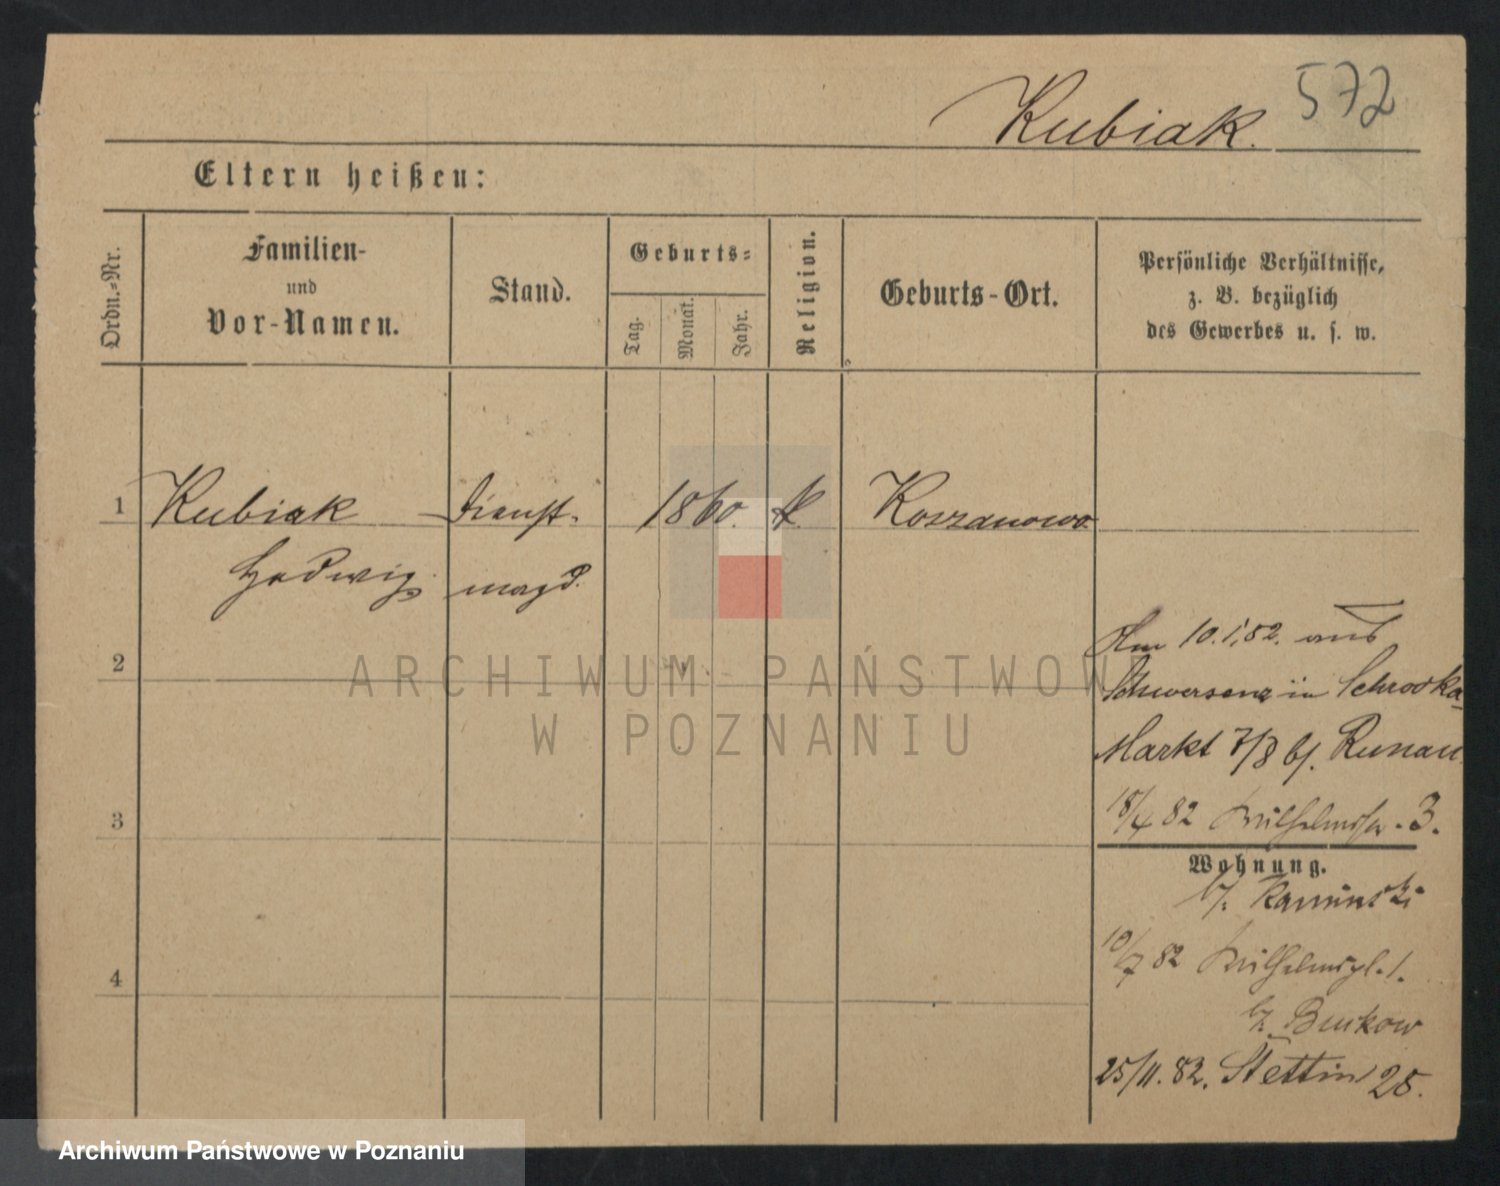 572
Kubiak.
Eltern heißen:
Ordn.-Nr.
Familien-
und
Vor-Namen.
Stand.
Geburts-
Tag.
Monat.
Jahr.
Religion.
Geburts-Ort.
Persönliche Verhältnisse,
z. B. bezüglich
des Gewerbes u. s. w.
1 Kubiak Dienst- 1860. k. Koszanowo
Hedwig magd.
Am 10.1.82. aus
2
Schwersenz in Schrodka
Markt 7/8 bj. Runau
3
18/4 82 Wilhelmstr. 3.
Wohnung.
bj. Kaminski
10/7 82 Wilhelmspl. 1.
4
bj. Burkow
25/11. 82. Stettin 25.
ARCHIWUM PAŃSTWOWE
W POZNANIU
Archiwum Państwowe w Poznaniu